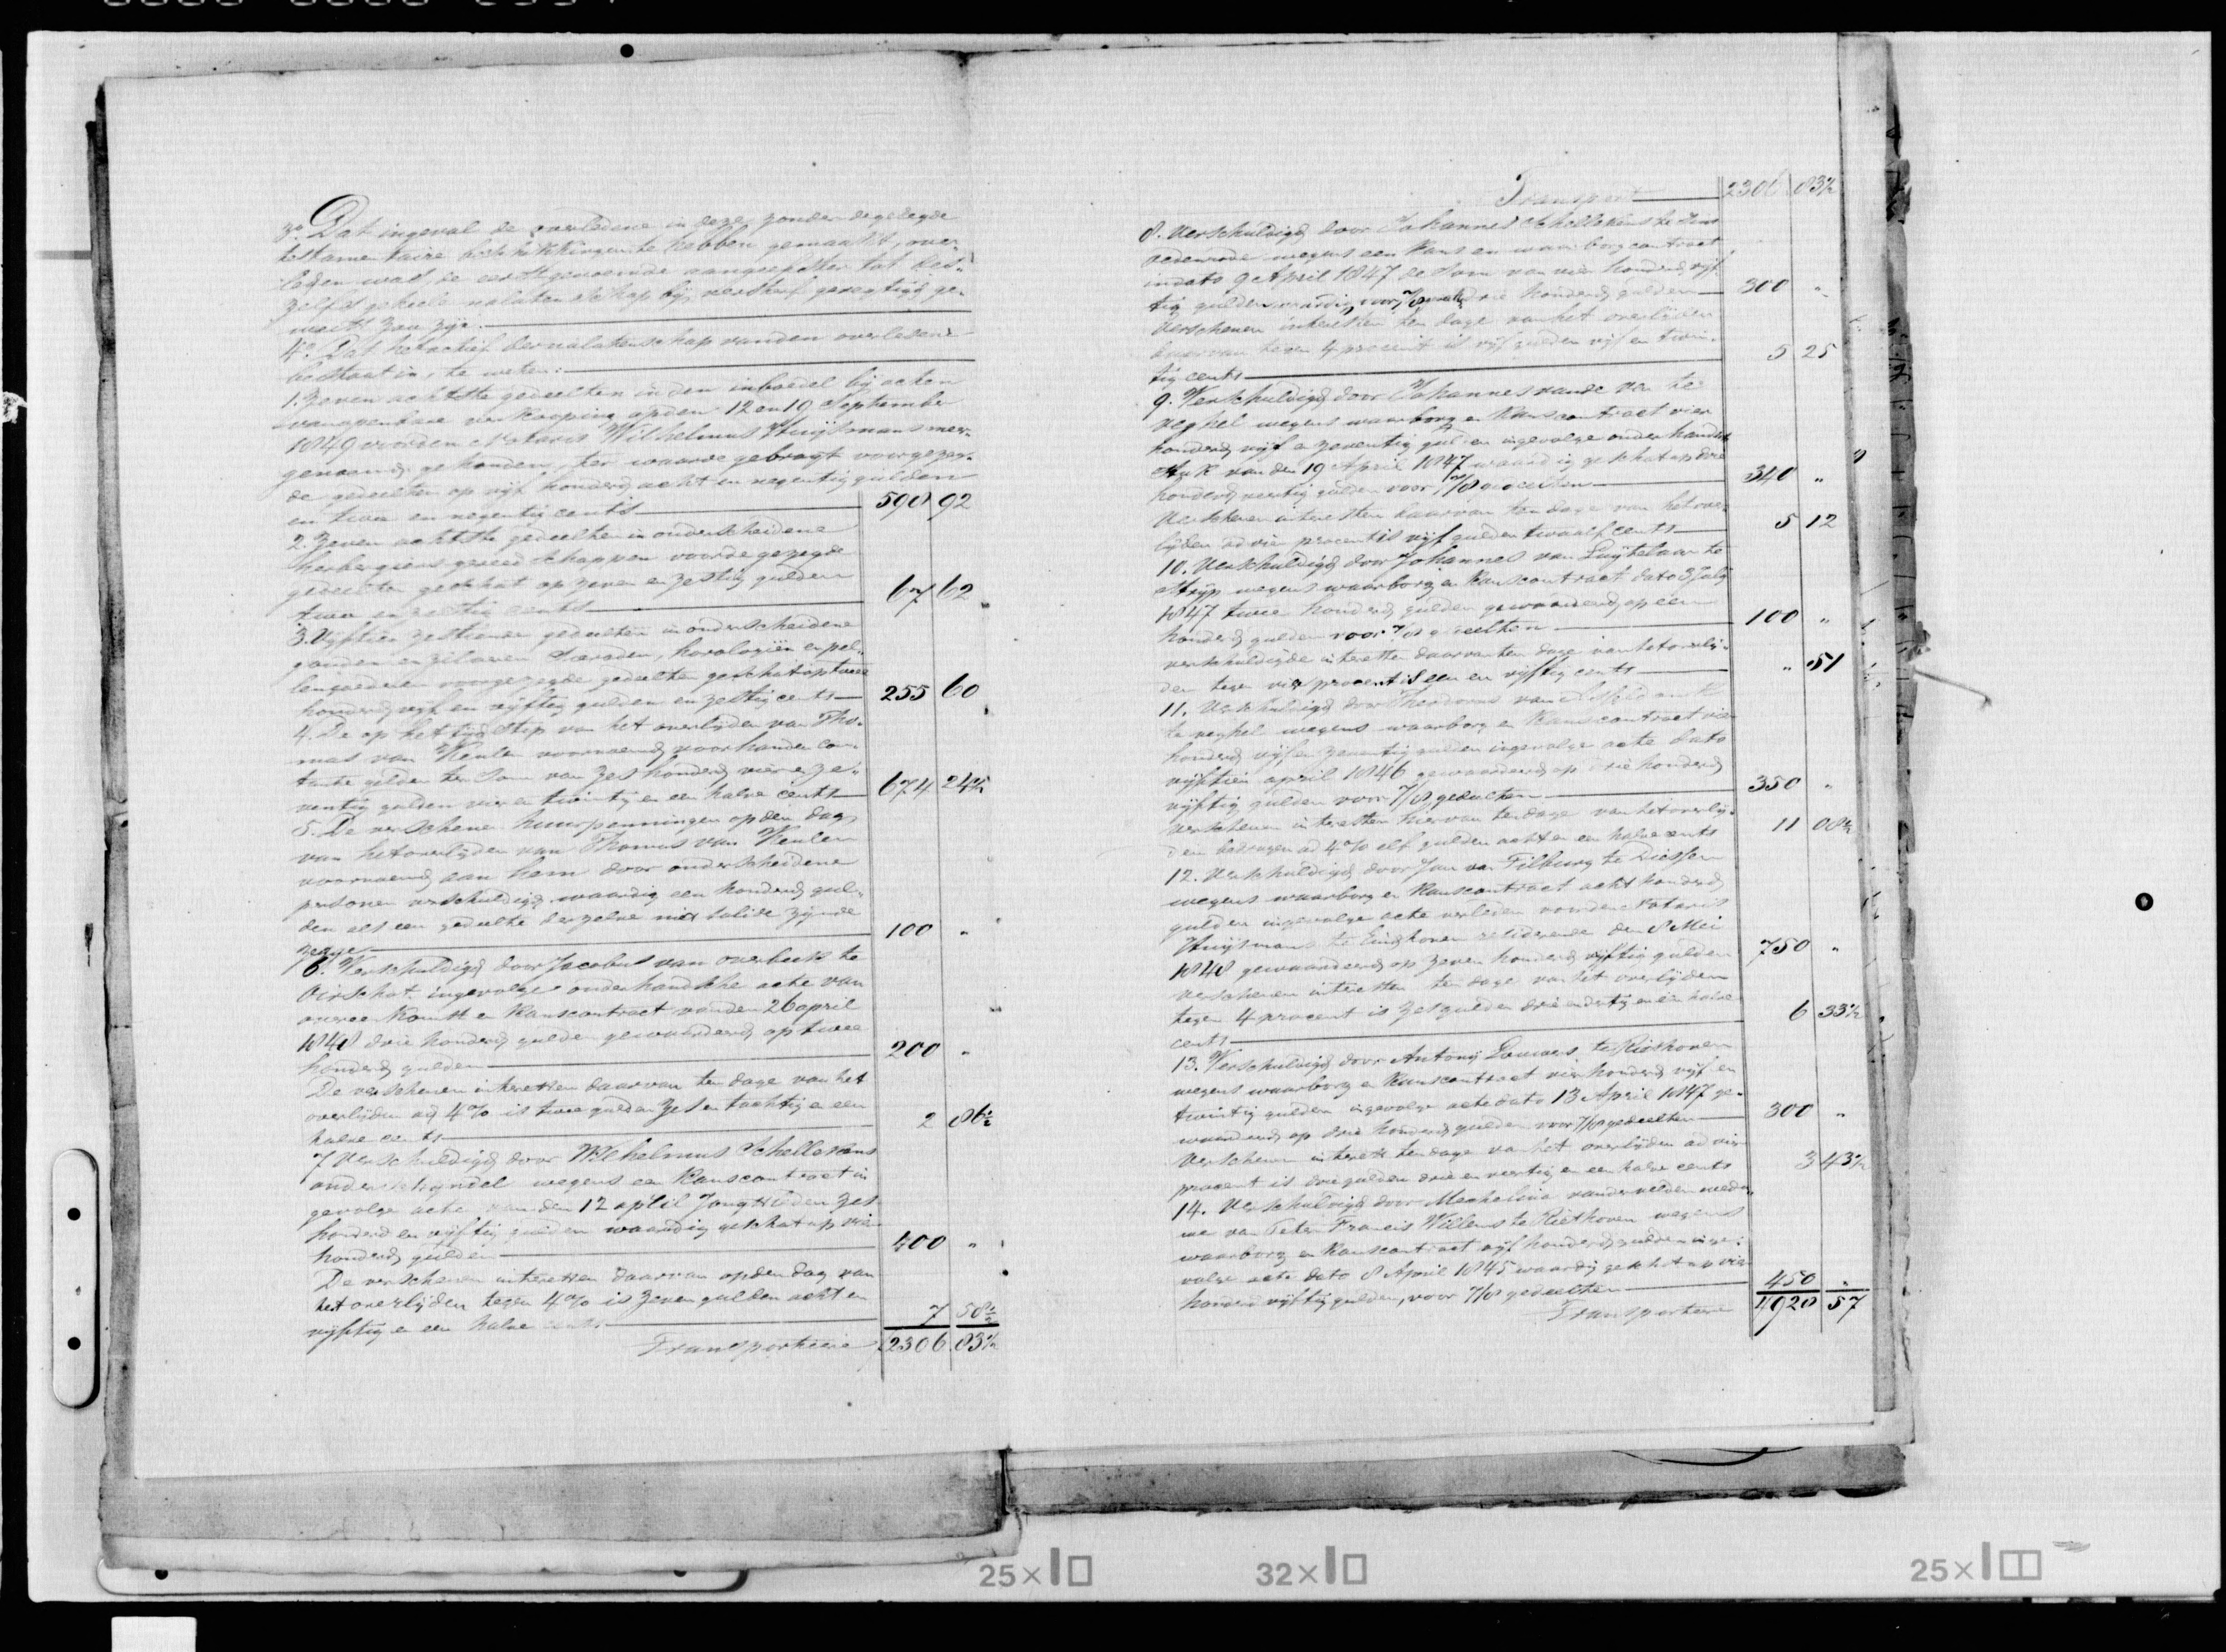 3o. Dat ingeval de overledene in dezen zonder de gelegde
testamentaire beschikkingen te hebben gemaakt, over-
leden was, de eerstgenoemde aangeefster tot des-
zelfs geheele nalatenschap bij versterf geregtigd ge-
weest zou zijn.
4o. Dat het actief der nalatenschap van den overledene
bestaat in, te weten:
1. Zeven achtste gedeelten in den inboedel bij acten
van openbare verkooping op den 12 en 19 September
1849 voor den Notaris Wilhelmus Huijsmans mer-
genoemd gehouden, ter waarde gebragt voorgezeg-
de gedeelten op vijf honderd acht en negentig gulden
en twee en negentig cents 598 92
2. Zeven achtste gedeelten in onderscheidene
herbergiers gereedschappen voorde gezegde
gedeelten geschat op zeven en zestig gulden
twee en zestig cents 67 62
3. Vijftien zestiende gedeelten in onderscheidene
gouden en zilveren sieraden, horologiën en pel-
lengoederen voorgezegde gedeelten geschat op twee
honderd vijf en vijftig gulden en zestig cents 255 60
4. De op het tijdstip van het overlijden van Tho-
mas van Keulen voornoemd voorhanden con-
tante gelden ter Som van zes honderd vier en ze-
ventig gulden vier en twintig en een halve cents 674 24½
5. De verschenen huurpenningen op den dag
van het overlijden van Thomas van Keulen
voornoemd aan hem door onderscheidene
personen verschuldigd waardig een honderd gul-
den als een gedeelte derzelve niet solide zijnde
100 "
6. Verschuldigd door Jacobus van overbeek te
Oirschot ingevolge onderhandsche acte van
overeenkomst en Kanscontract van den 26 april
1848 drie honderd gulden gewaardeerd op twee
honderd gulden 200 "
De verschenen interesten daarvan ten dage van het
overlijden ad 4% is twee gulden zes en tachtig en een
halve cents 2 86½
7 Verschuldigd door Wilhelmus Schellekens
onder Schijndel wegens een Kanscontract in
gevolge acte van den 12 april Jongstleden zes
honderd en vijftig gulden waardig geschat op vier
honderd gulden 400 "
De verschenen interesten daarvan op den dag van
het overlijden tegen 4% is zeven gulden acht en
vijftig en een halve cents 7 58½
Transporteere 2306 83½
Transport 2306 83½
8. Verschuldigd door Johannes Schellekens te Sint
oedenrode wegens een Kans en waarborgcontract
in dato 9 April 1847 de Som van vier honderd vijf
tig gulden waardig voor 7/8 drie honderd gulden 300 "
Verschenen interesten ten dage van het overlijden
daarvan tegen 4 procent is vijf gulden vijf en twin-
tig cents 5 25
9. Verschuldigd door Johannes vande Ven te
Veghel wegens waarborg en Kanscontract vier
honderd vijf en zeventig gulden ingevolge onderhandsch
Stuk van den 19 April 1847 waardig geschat op drie
honderd veertig gulden voor 7/8 gedeelten 340 "
Verschenen interesten daarvan ten dage van het over-
lijden ad vier procent is vijf gulden twaalf cents 5 12
10. Verschuldigd door Johannes van Luijtelaar te
Strijp wegens waarborg en Kanscontract dato 3 Julij
1847 twee honderd gulden gewaardeerd op een
honderd gulden voor 7/8 gedeelten 100 "
verschuldigde interesten daarvan ten dage van het overlij-
den tegen vier procent is een en vijftig cents " 51
11. Verschuldigd door Theodorus van
te veghel wegens waarborg en Kanscontract vier
honderd vijf en zeventig gulden ingevolge acte dato
vijftien april 1846 gewaardeerd op drie honderd
vijftig gulden voor 7/8 gedeelten 350 "
Verschenen interesten hiervan ten dage van het overlij-
den bedragen ad 4% elf gulden acht en een halve cents 11 08½
12. Verschuldigd door Jan van Tilburg te Diessen
wegens waarborg en Kanscontract acht honderd
gulden ingevolge acte verleden voor den Notaris
Huijsmans te Eindhoven resideerende den 8 Mei
1848 gewaardeerd op zeven honderd vijftig gulden 750 "
verschenen interesten ten dage van het overlijden
tegen 4 procent is zes gulden drie en dertig en een halve
cents 6 33½
13. Verschuldigd door Antonij Louwers te Riethoven
wegens waarborg en Kanscontract vier honderd vijf en
twintig gulden ingevolge acte dato 13 April 1847 ge-
waardeerd op drie honderd gulden voor 7/8 gedeelten 300 "
Verschenen interest ten dage van het overlijden ad vier
procent is drie gulden drie en veertig en een halve cents 3 43½
14. Verschuldigd door Mechelina vander velden wedu-
we van Peter Francis Willems te Riethoven wegens
waarborg en Kanscontract vijf honderd gulden inge-
volge acte dato 8 April 1845 waardig geschat op vier
honderd vijftig gulden, voor 7/8 gedeelten 450 "
Transporteere 4928 57
25× 32× 25×